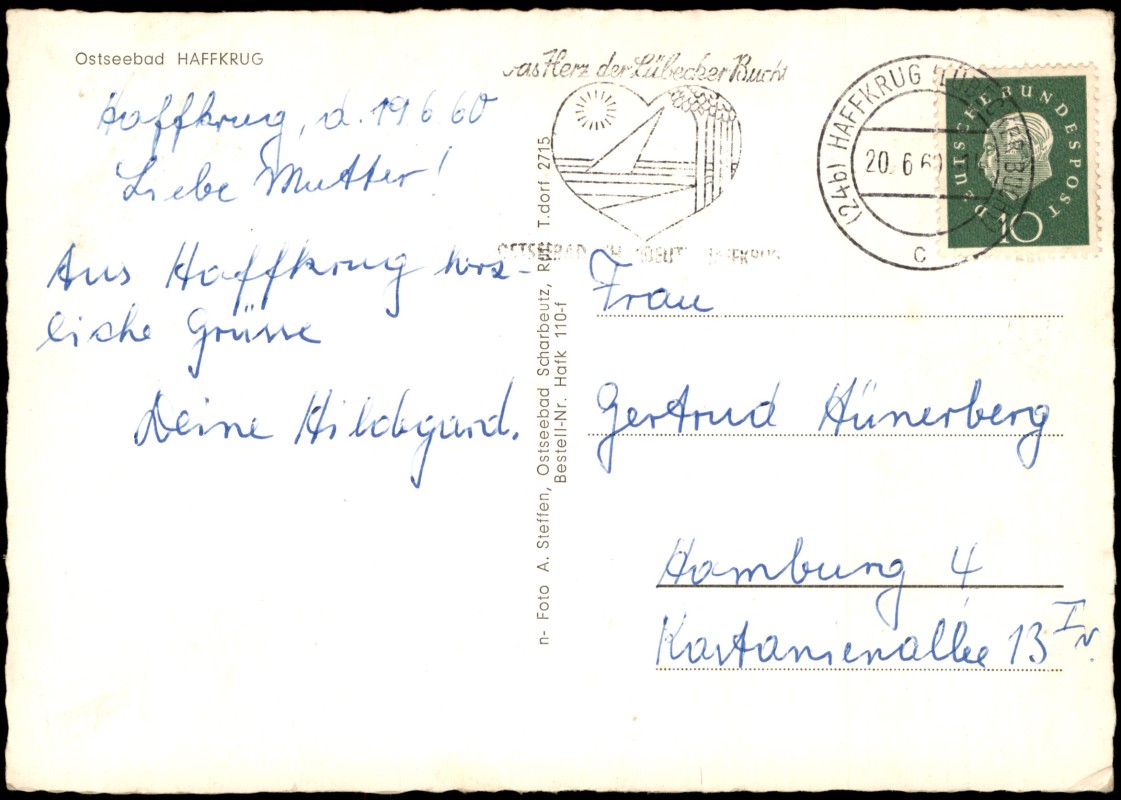 Ostseebad HAFFKRUG
Haffkrug, d. 19.6.60
Liebe Mutter!
Aus Haffkrug herz-
liche Grüsse
Deine Hildegard.
n- Foto A. Steffen, Ostseebad Scharbeutz, Ruf T.dorf 2715
Bestell-Nr. Hafk 110-f
das Herz der Lübecker Bucht
OSTSEEBAD HAFFKRUG
(24b) HAFFKRUG (LÜBECKER BUCHT)
20.6.60
C
DEUTSCHE BUNDESPOST
10
Frau
Gertrud Hünerberg
Hamburg 4
Kastanienallee 13 I r.